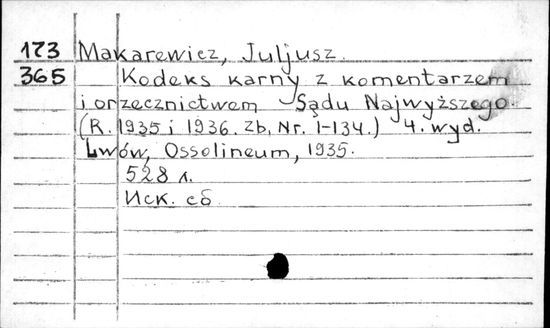 173 Makarewicz, Juljusz.
365 Kodeks karny z komentarzem
i orzecznictwem Sądu Najwyższego.
(R. 1935 i 1936. Zb, Nr. 1-134.) 4. wyd.
Lwów, Ossolineum, 1935.
528 л.
Иск. сб